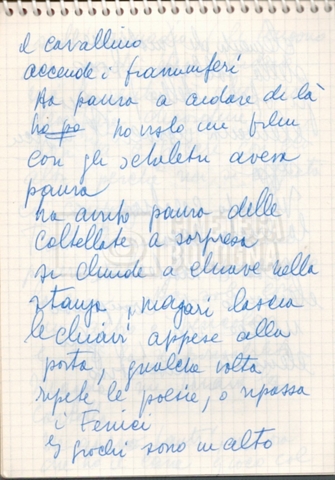 il cavallino
accende i fiammiferi
Ha paura a andare di là
ho visto un film
con gli scheletri aveva
paura
ha avuto paura delle
coltellate a sorpresa
si chiude a chiave nella
stanza, magari lascia
le chiavi appese alla
porta, qualche volta
ripete le poesie, o ripassa
i Fenici
I giochi sono in alto